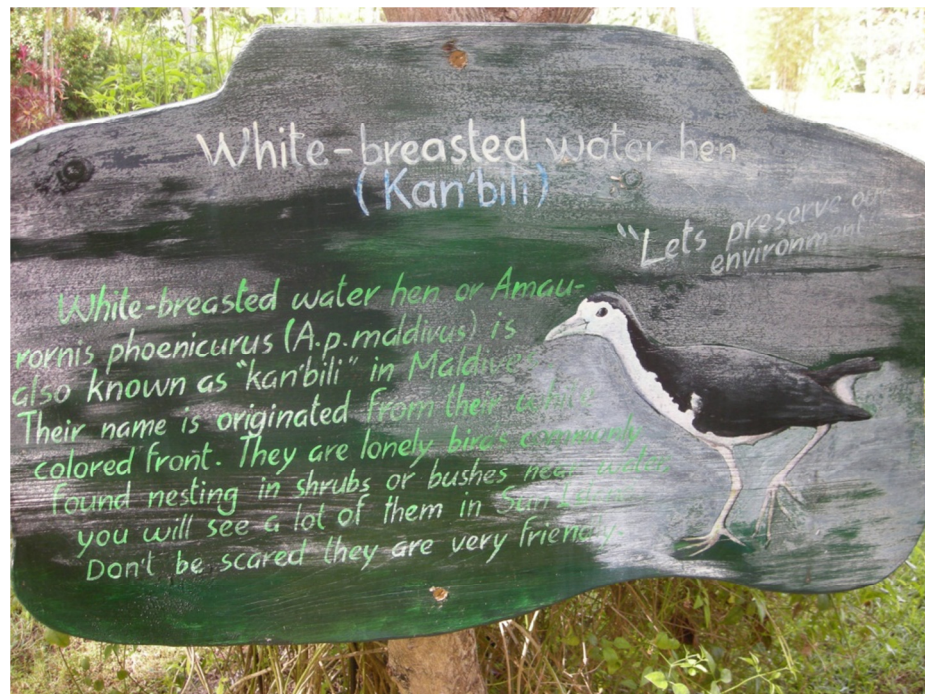 White-breasted water hen
(Kan'bili)
"Lets preserve our
environment"
White-breasted water hen or Amau-
rornis phoenicurus (A.p.maldivus) is
also known as "kan'bili" in Maldives.
Their name is originated from their white
colored front. They are lonely birds commonly
found nesting in shrubs or bushes near water.
you will see a lot of them in Sun Island.
Don't be scared they are very friendly.